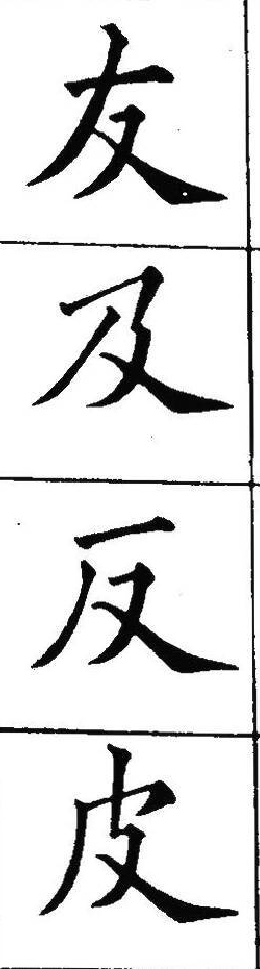 友
及
反
皮